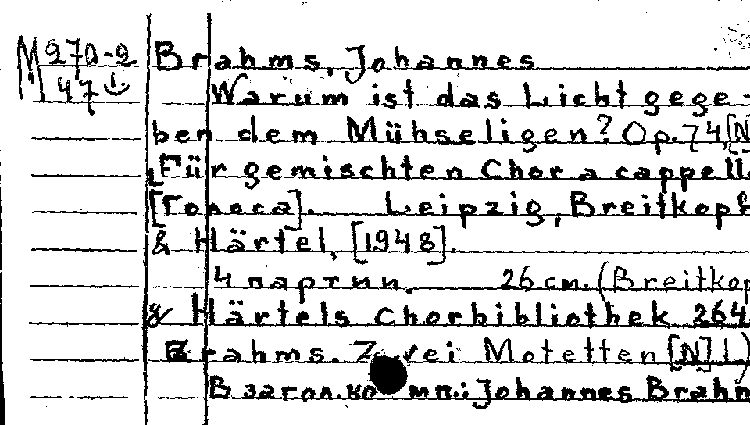 М 270-2 Brahms, Johannes
47
Warum ist das Licht gege-
ben dem Mühseligen? Op. 74, [N
[Für gemischten Chor a cappell
[Голоса]. Leipzig, Breitkopf
& Härtel, [1948].
4 партии. 26 см. (Breitkop
& Härtels Chorbibliothek 264
Brahms. Zwei Motetten [N] 1)
В загол. комп.: Johannes Brahm